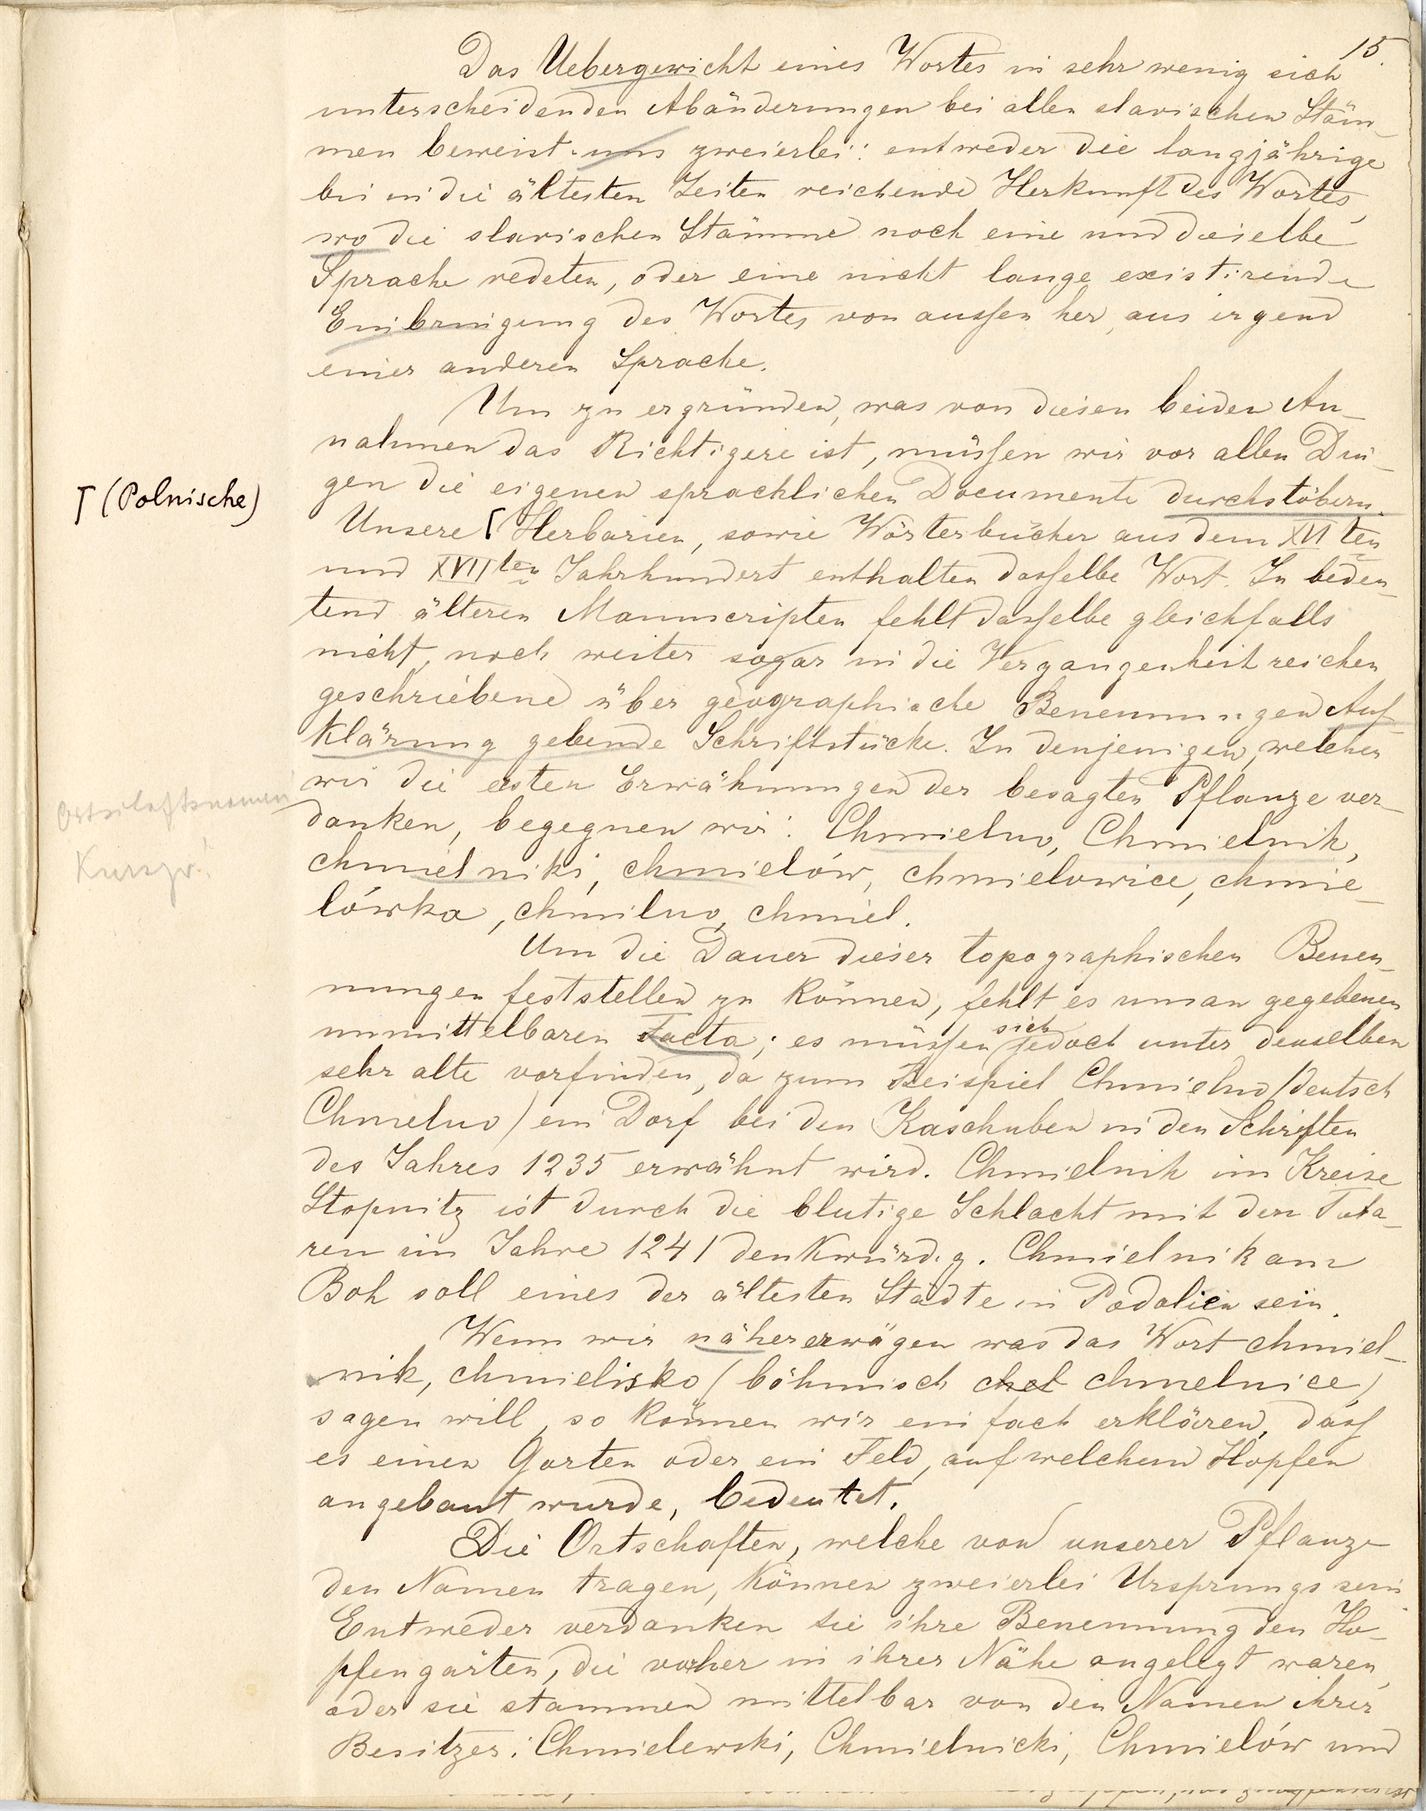 15.
Das Uebergewicht eines Wortes in sehr wenig sich
unterscheidenden Abänderungen bei allen slavischen Stäm-
men beweist uns zweierlei: entweder die langjährige
bis in die ältesten Zeiten reichende Herkunft des Wortes,
wo die slavischen Stämme noch eine und dieselbe
Sprache redeten, oder eine nicht lange existirende
Einbringung des Wortes von aussen her, aus irgend
einer anderen Sprache.
Um zu ergründen, was von diesen beiden An-
nahmen das Richtigere ist, müssen wir vor allen Din-
gen die eigenen sprachlichen Documente durchstöbern.
Γ (Polnische)
Unsere Γ Herbarien, sowie Wörterbücher aus dem XVI ten
und XVII ten Jahrhundert enthalten dasselbe Wort. In bedeu-
tend älteren Manuscripten fehlt dasselbe gleichfalls
nicht, noch weiter sogar in die Vergangenheit reichen
geschriebene über geographische Benennungen Auf-
klärung gebende Schriftstücke. In denjenigen, welchen
wir die ersten Erwähnungen der besagten Pflanze ver-
Ortschaftsnamen
danken, begegnen wir: Chmielno, Chmielnik,
chmielniki, chmielów, chmielowice, chmie-
lówka, chmilno, chmiel.
Um die Dauer dieser topographischen Benen-
nungen feststellen zu können, fehlt es uns an gegebenen
unmittelbaren Facta; es müssen sich jedoch unter denselben
sehr alte vorfinden, da zum Beispiel Chmielno (deutsch
Chmelno) ein Dorf bei den Kaschuben in den Schriften
des Jahres 1235 erwähnt wird. Chmielnik im Kreise
Stopnitz ist durch die blutige Schlacht mit den Tata-
ren im Jahre 1241 denkwürdig. Chmielnik am
Boh soll eines der ältesten Städte in Podolien sein.
Wenn wir näher erwägen was das Wort chmiel-
nik, chmielisko (böhmisch chel chmelnice)
sagen will, so können wir einfach erklären, dass
es einen Garten oder ein Feld, auf welchem Hopfen
angebaut wurde, bedeutet.
Die Ortschaften, welche von unserer Pflanze
den Namen tragen, können zweierlei Ursprungs sein.
Entweder verdanken sie ihre Benennung den Ho-
pfengärten, die vorher in ihrer Nähe angelegt waren,
oder sie stammen mittelbar von den Namen ihrer
Besitzer: Chmielewski, Chmielnicki, Chmielów und